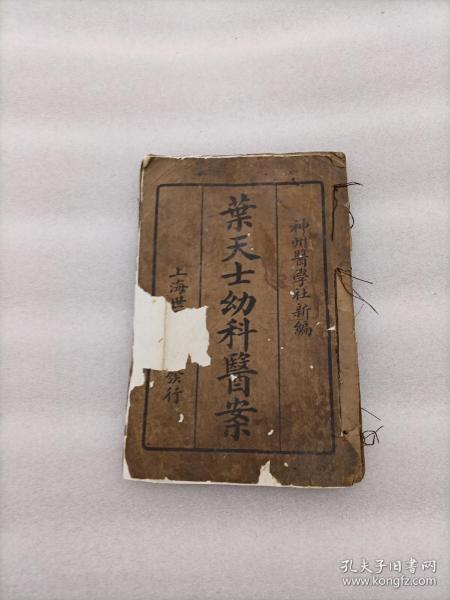 神州醫學社新編
葉天士幼科醫案
上海世
發行
孔夫子旧书网
www.kongfz.com